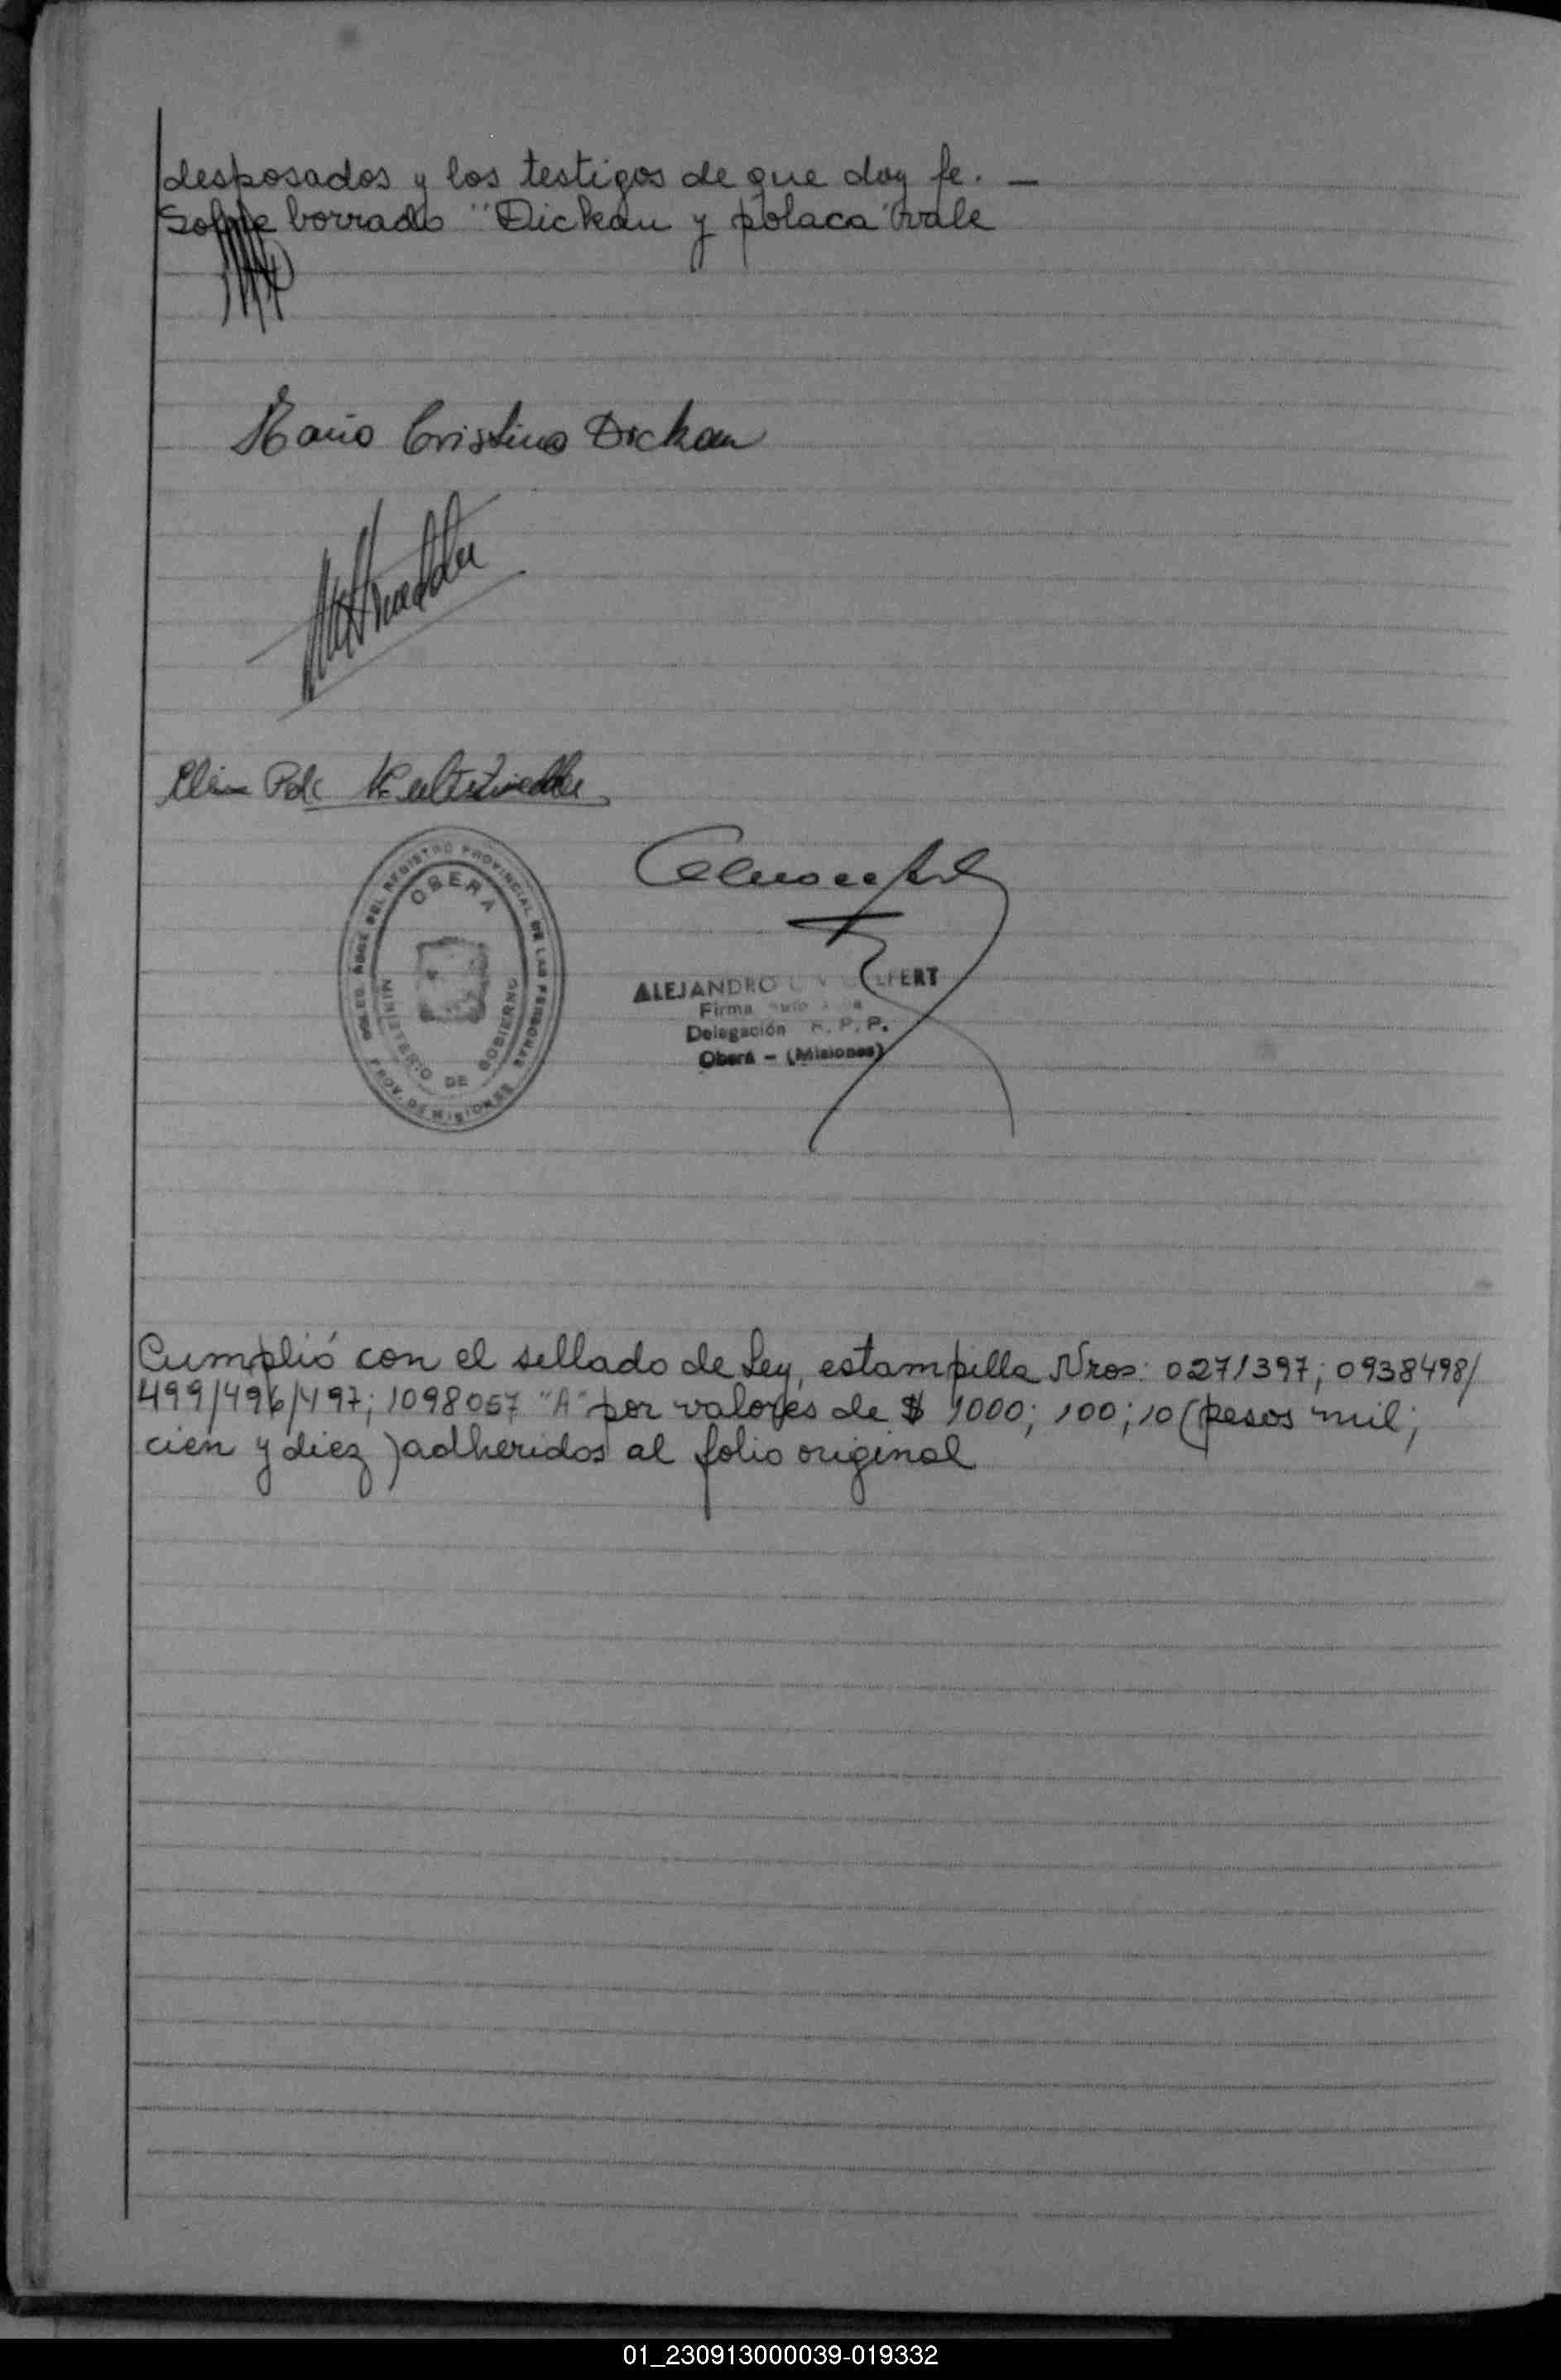 desposados y los testigos de que doy fe. —
Sobre borrado "Dickau y polaca" vale
Maria Cristina Dickau
DELEG. DEL REGISTRO PROVINCIAL DE LAS PERSONAS
OBERA
MINISTERIO DE GOBIERNO
PROV. DE MISIONES
ALEJANDRO
Firma
Delegación R. P. P.
Oberá - (Misiones)
Cumplió con el sellado de Ley, estampilla Nros: 0271397; 0938498/
499/496/497; 1098057 "A" por valores de $ 1000; 100; 10 (pesos mil;
cien y diez) adheridos al folio original
01_230913000039-019332